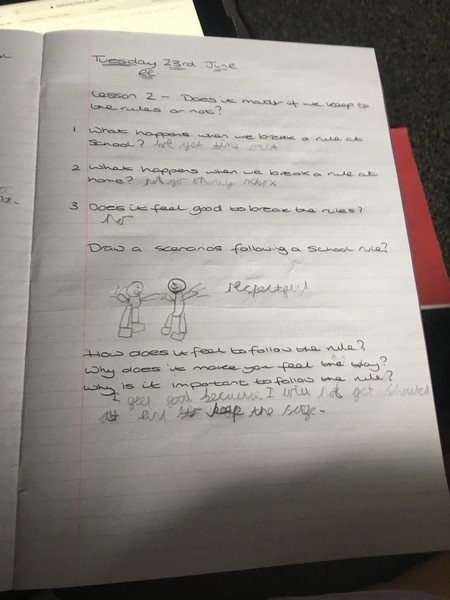 Tuesday 23rd June.
RE
Lesson 2 - Does it matter if we keep to
the rules or not?
1 What happens when we break a rule at
School? We get time out
2 What happens when we break a rule at
home? not go on my xbox
3 Does it feel good to break the rules?
No
Draw a scenarios following a School rule?
respectful
How does it feel to follow the rule?
Why does it make you feel the way?
Why is it important to follow the rule?
I feel good because I will not get shouted
at and to keep the safe.